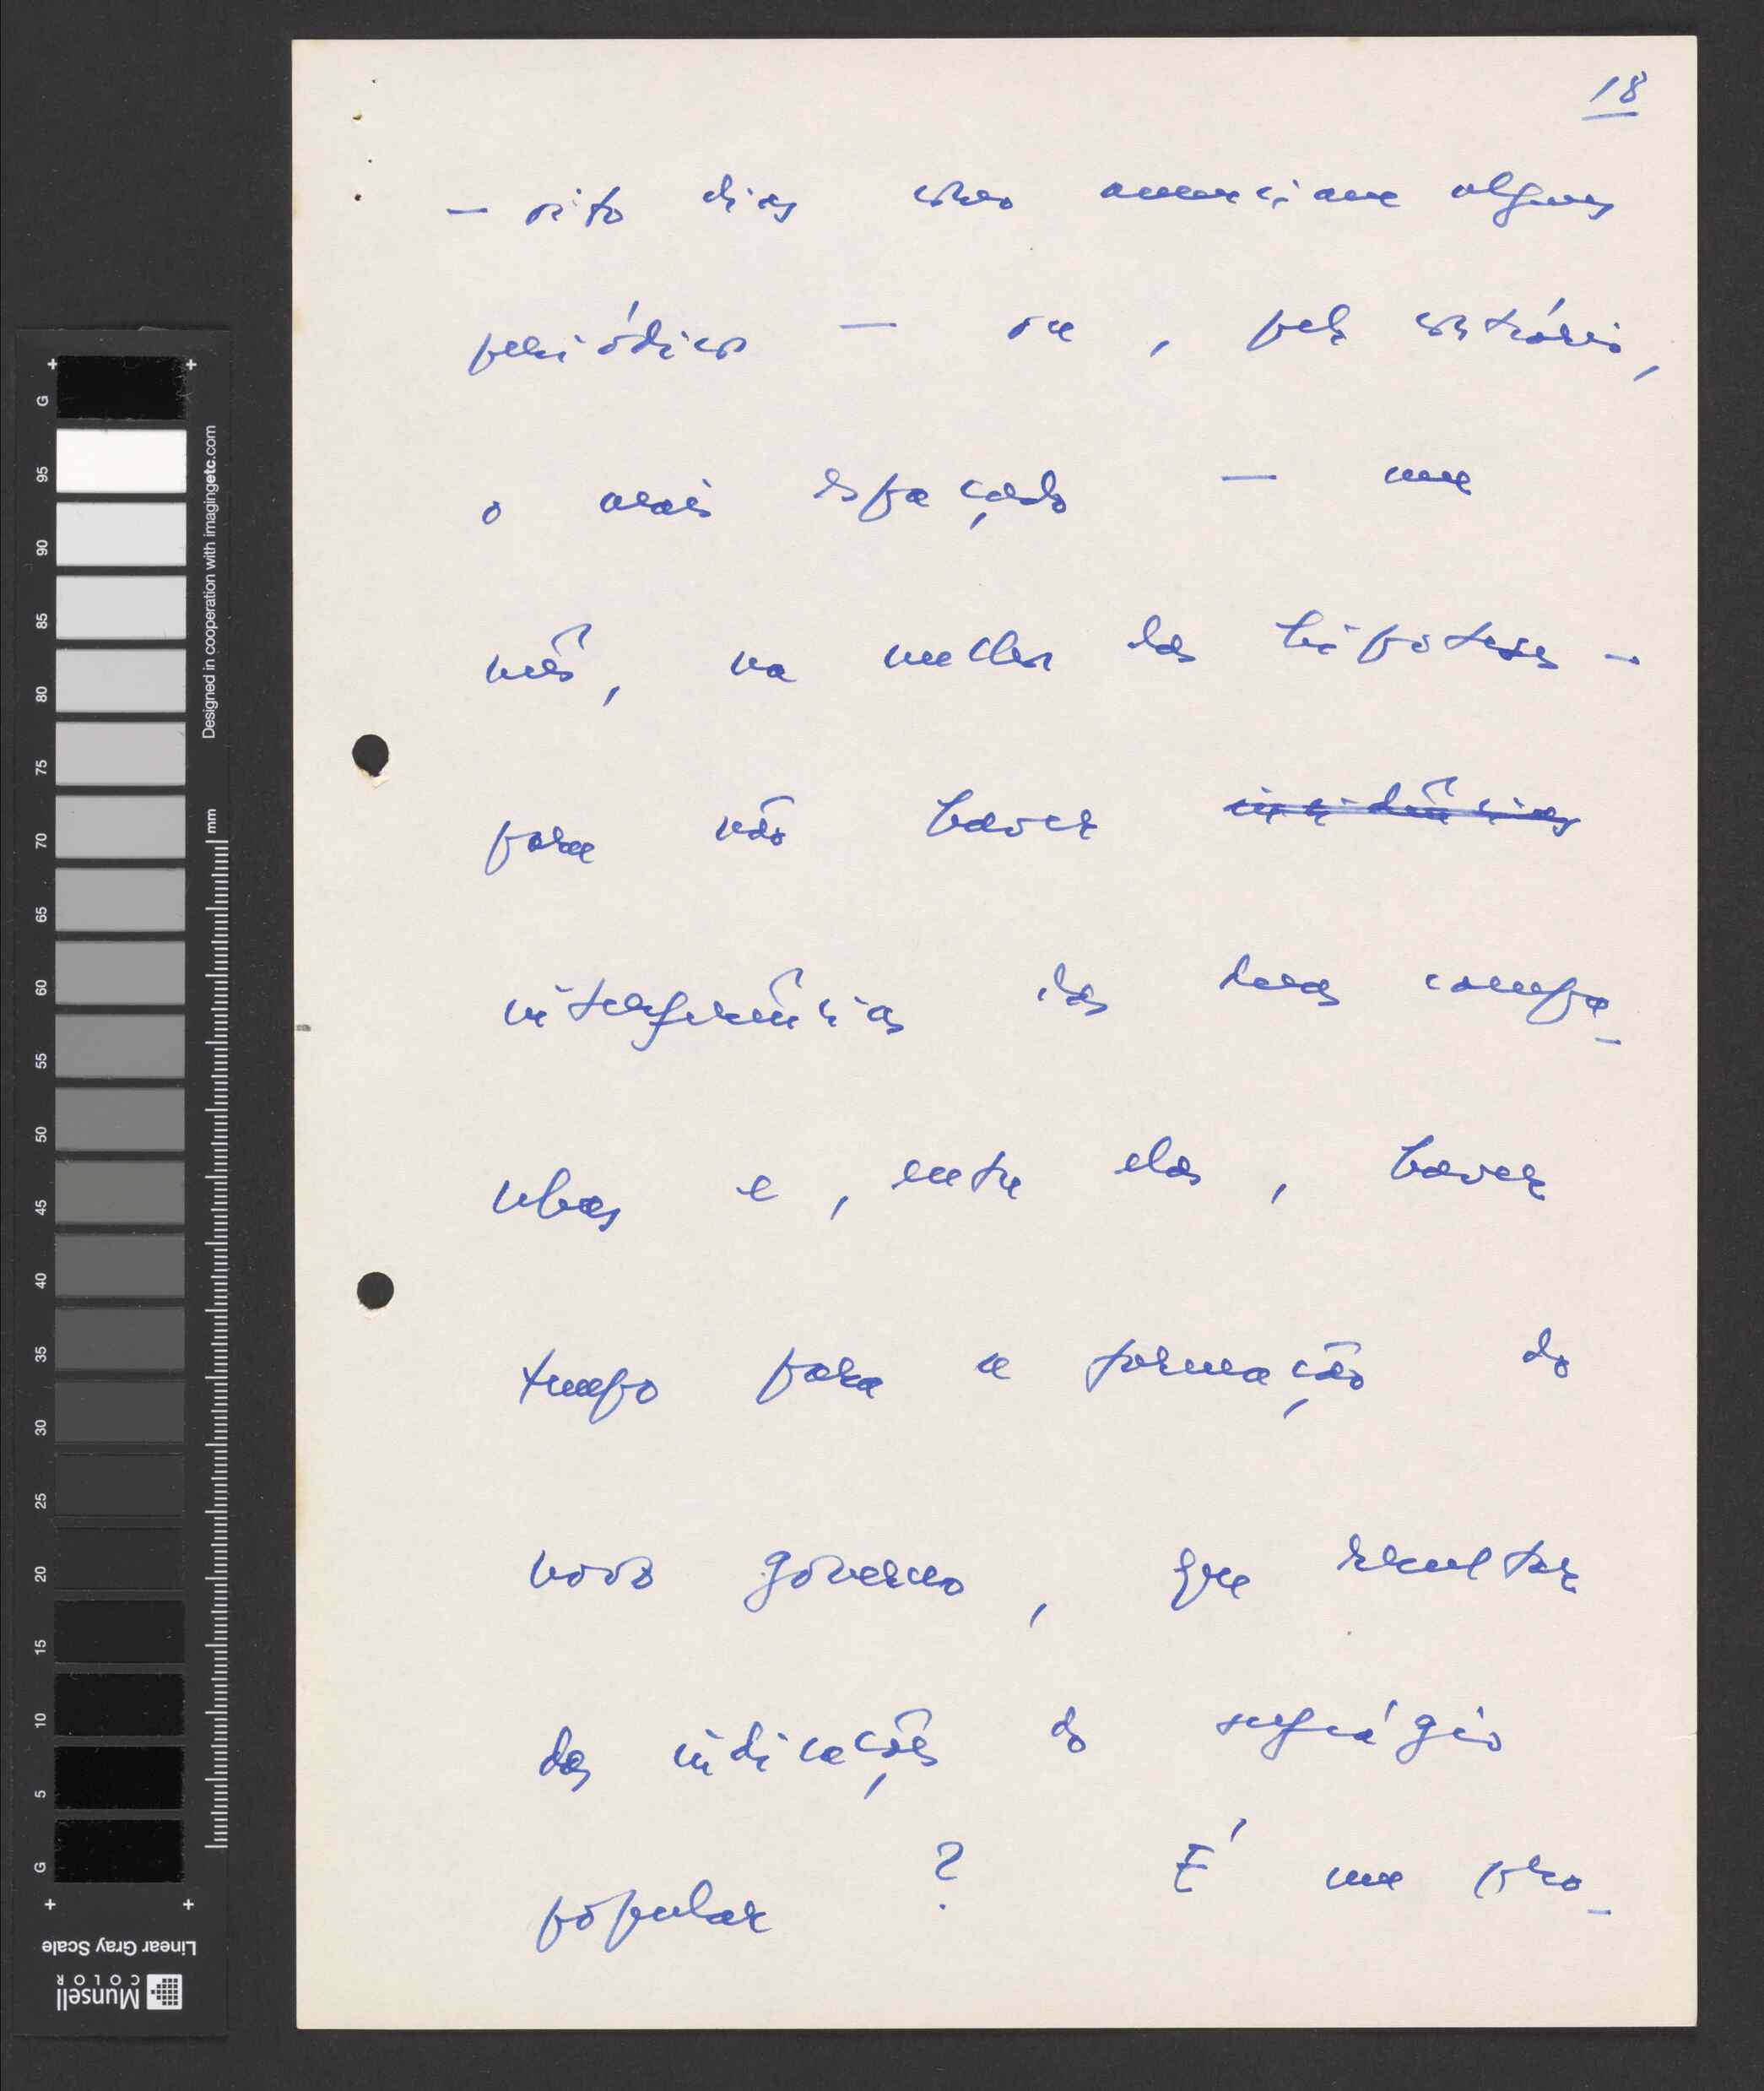 18
— oito dias como anunciam alguns
periódicos — ou, pelo contrário,
o mais espaçado — um
mês, na melhor das hipóteses —
para não haver incidências
interferências das duas campa-
nhas e, entre elas, haver
tempo para a formação do
novo governo, que resultar
das indicações do sufrágio
popular? É um pro-
G
95
90
85
80
75
70
65
60
55
50
45
40
35
30
25
20
15
10
5
G
Designed in cooperation with imagingetc.com
mm
Linear Gray Scale
Munsell
COLOR